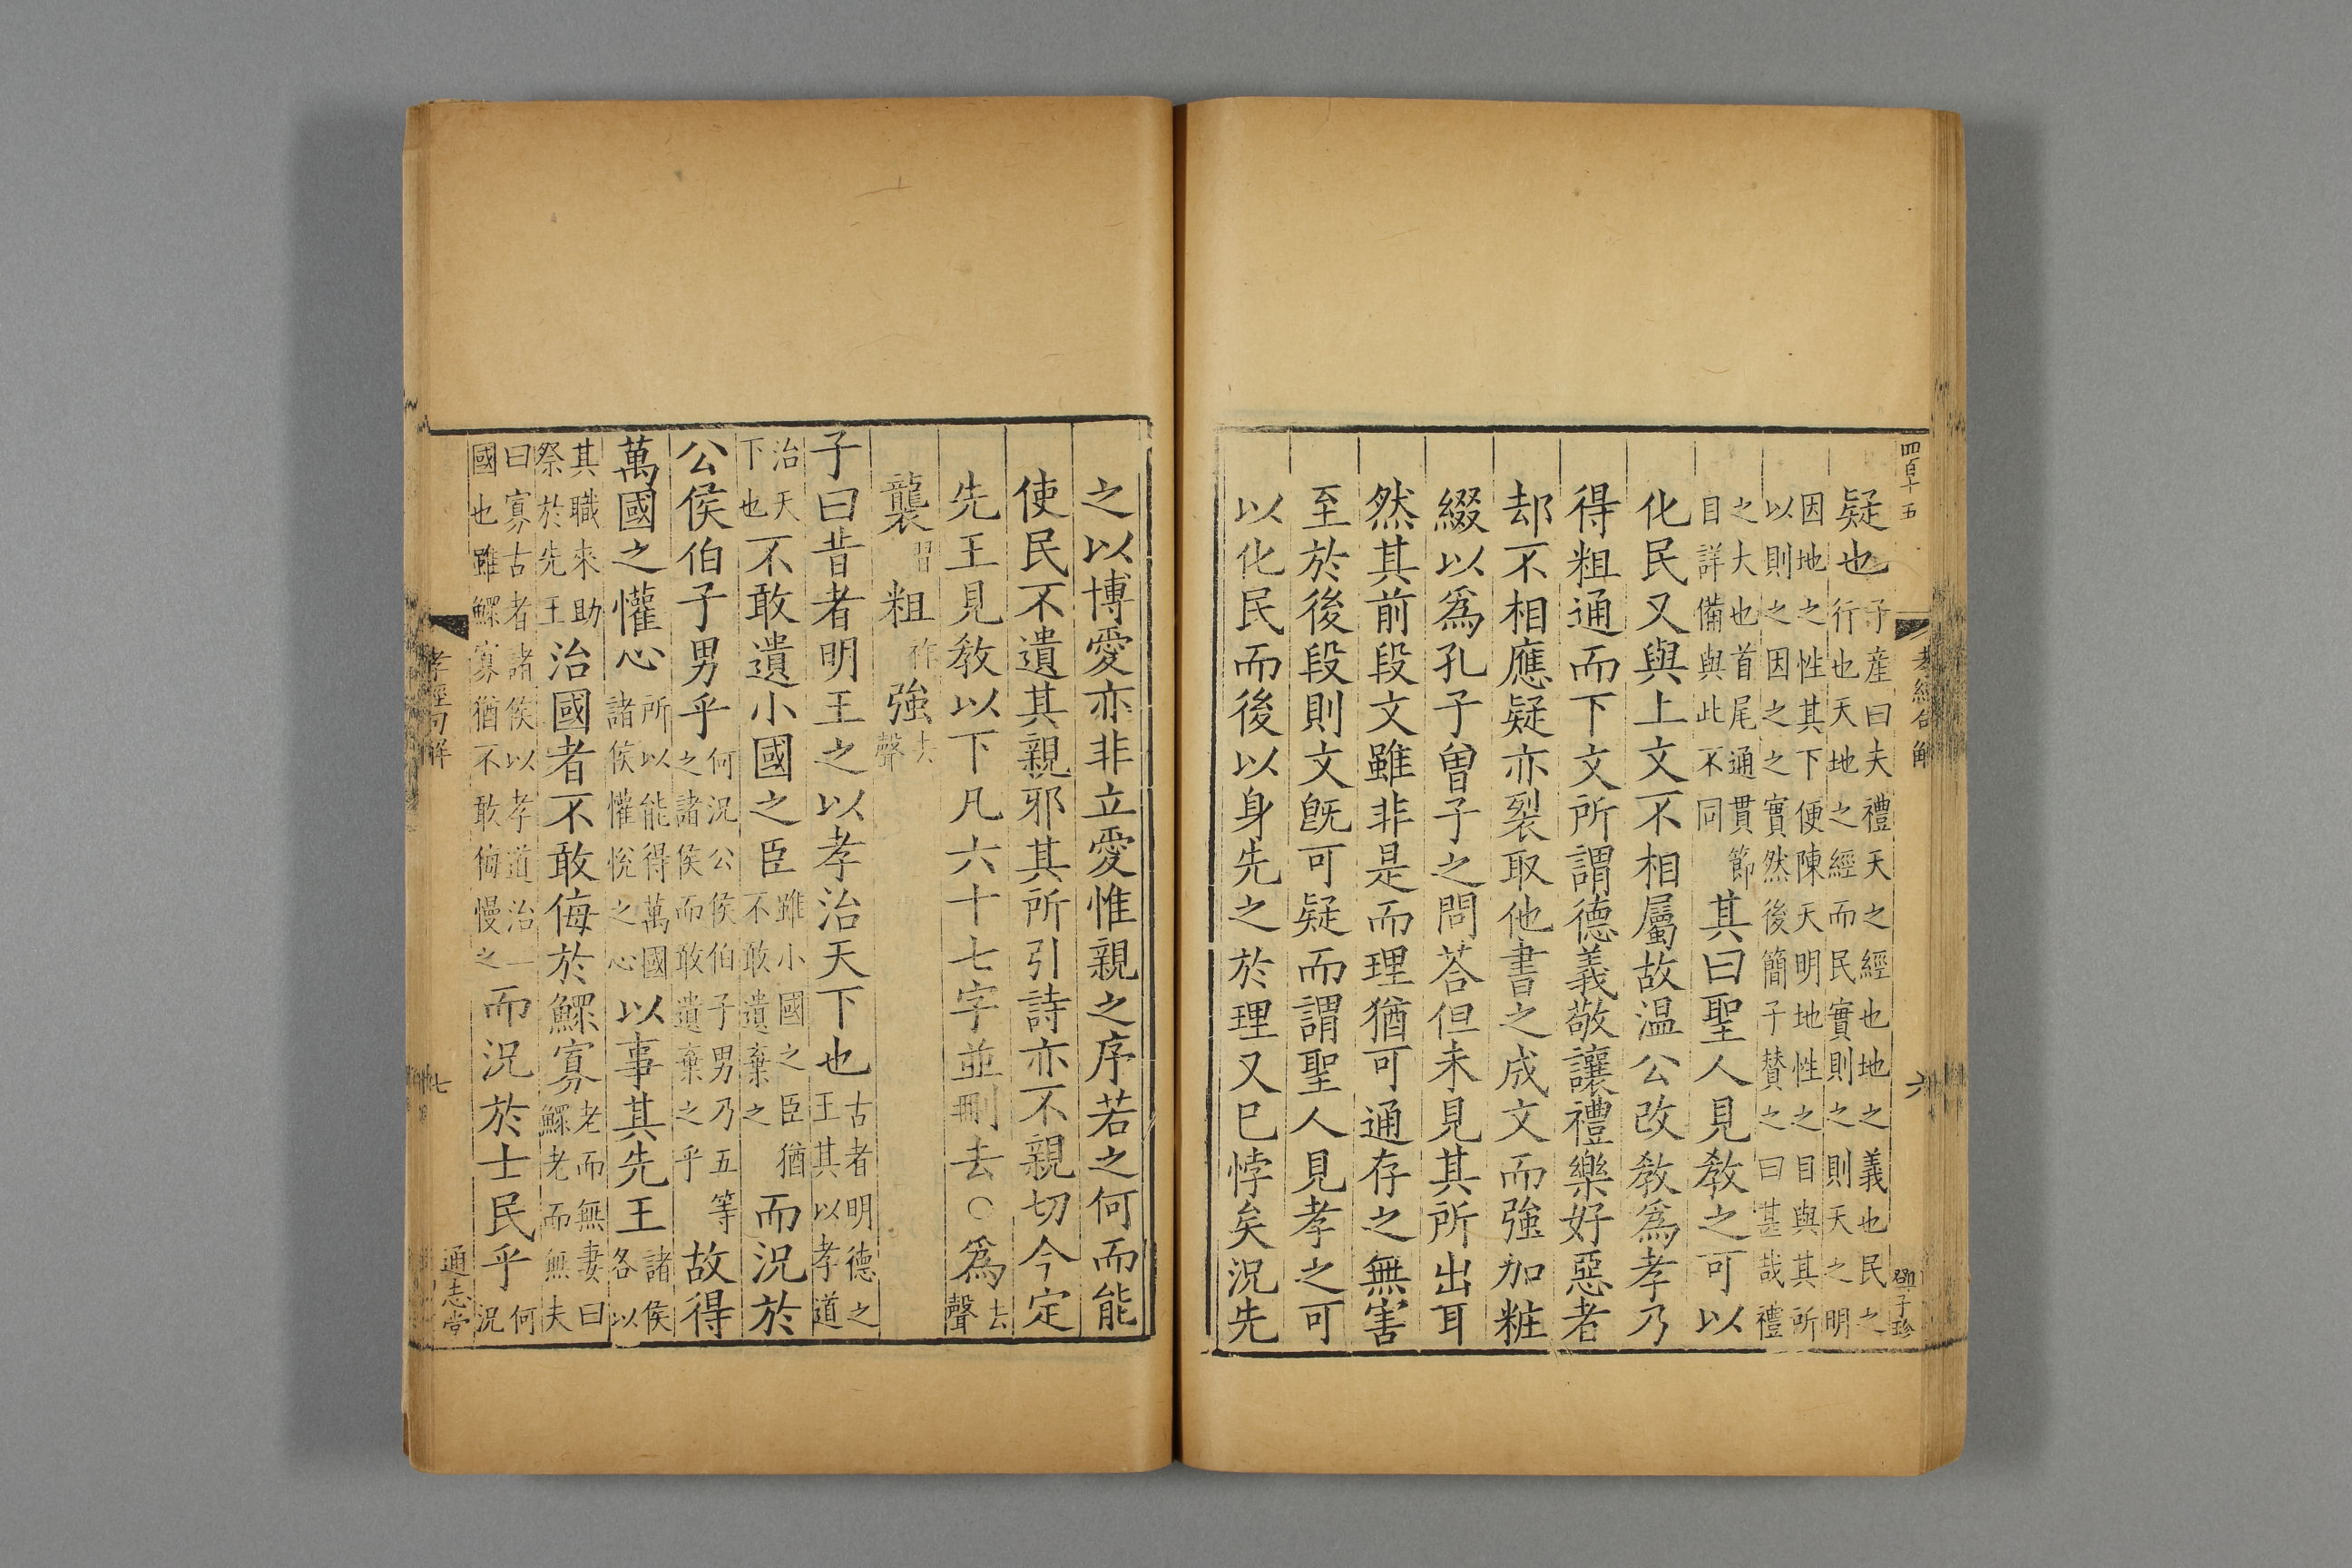 四百十五
孝經句解
六
鄧子珍
疑也子產曰夫禮天之經也地之義也民之行也天地之經而民實則之則天之明
因地之性其下便陳天明地性之目與其所以則之因之之實然後簡子賛之曰甚哉禮
之大也首尾通貫節目詳備與此不同其曰聖人見教之可以
化民又與上文不相屬故温公改教爲孝乃
得粗通而下文所謂德義敬讓禮樂好惡者
却不相應疑亦裂取他書之成文而強加粧
綴以爲孔子曾子之問荅但未見其所出耳
然其前段文雖非是而理猶可通存之無害
至於後段則文旣可疑而謂聖人見孝之可
以化民而後以身先之於理又已悖矣況先
之以博愛亦非立愛惟親之序若之何而能
使民不遺其親邪其所引詩亦不親切今定
先王見教以下凡六十七字並刪去○爲去聲
襲習粗祚強去聲
子曰昔者明王之以孝治天下也古者明德之王其以孝道
治天下也不敢遺小國之臣雖小國之臣猶不敢遺棄之而況於
公侯伯子男乎何況公侯伯子男乃五等之諸侯而敢遺棄之乎故得
萬國之懽心所以能得萬國諸侯懽悅之心以事其先王諸侯各以
其職來助祭於先王治國者不敢侮於鰥寡老而無妻曰鰥老而無夫
曰寡古者諸侯以孝道治一國也雖鰥寡猶不敢侮慢之而況於士民乎何況
孝經句解
七
通志堂